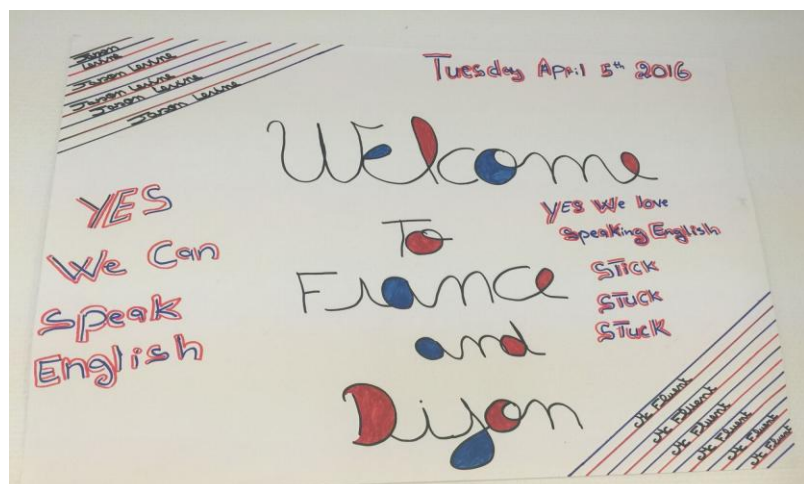 Jason
Levine
Jason Levine
Jason Levine
Jason Levine
Jason Levine
Tuesday April 5th 2016
Welcome
To
France
and
Dijon
YES
We Can
Speak
English
YES We love
Speaking English
STICK
STUCK
STUCK
Mc Fluent
Mc Fluent
Mc Fluent
Mc Fluent
Mc Fluent